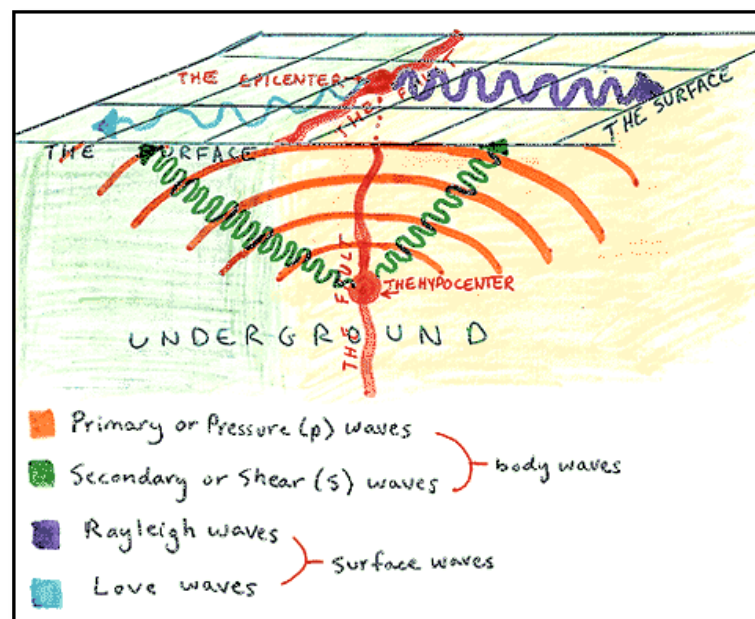 THE EPICENTER
THE FAULT
THE SURFACE
THE SURFACE
THE HYPOCENTER
THE FAULT
UNDERGROUND
Primary or Pressure (p) waves
Secondary or Shear (s) waves
body waves
Rayleigh waves
Love waves
surface waves